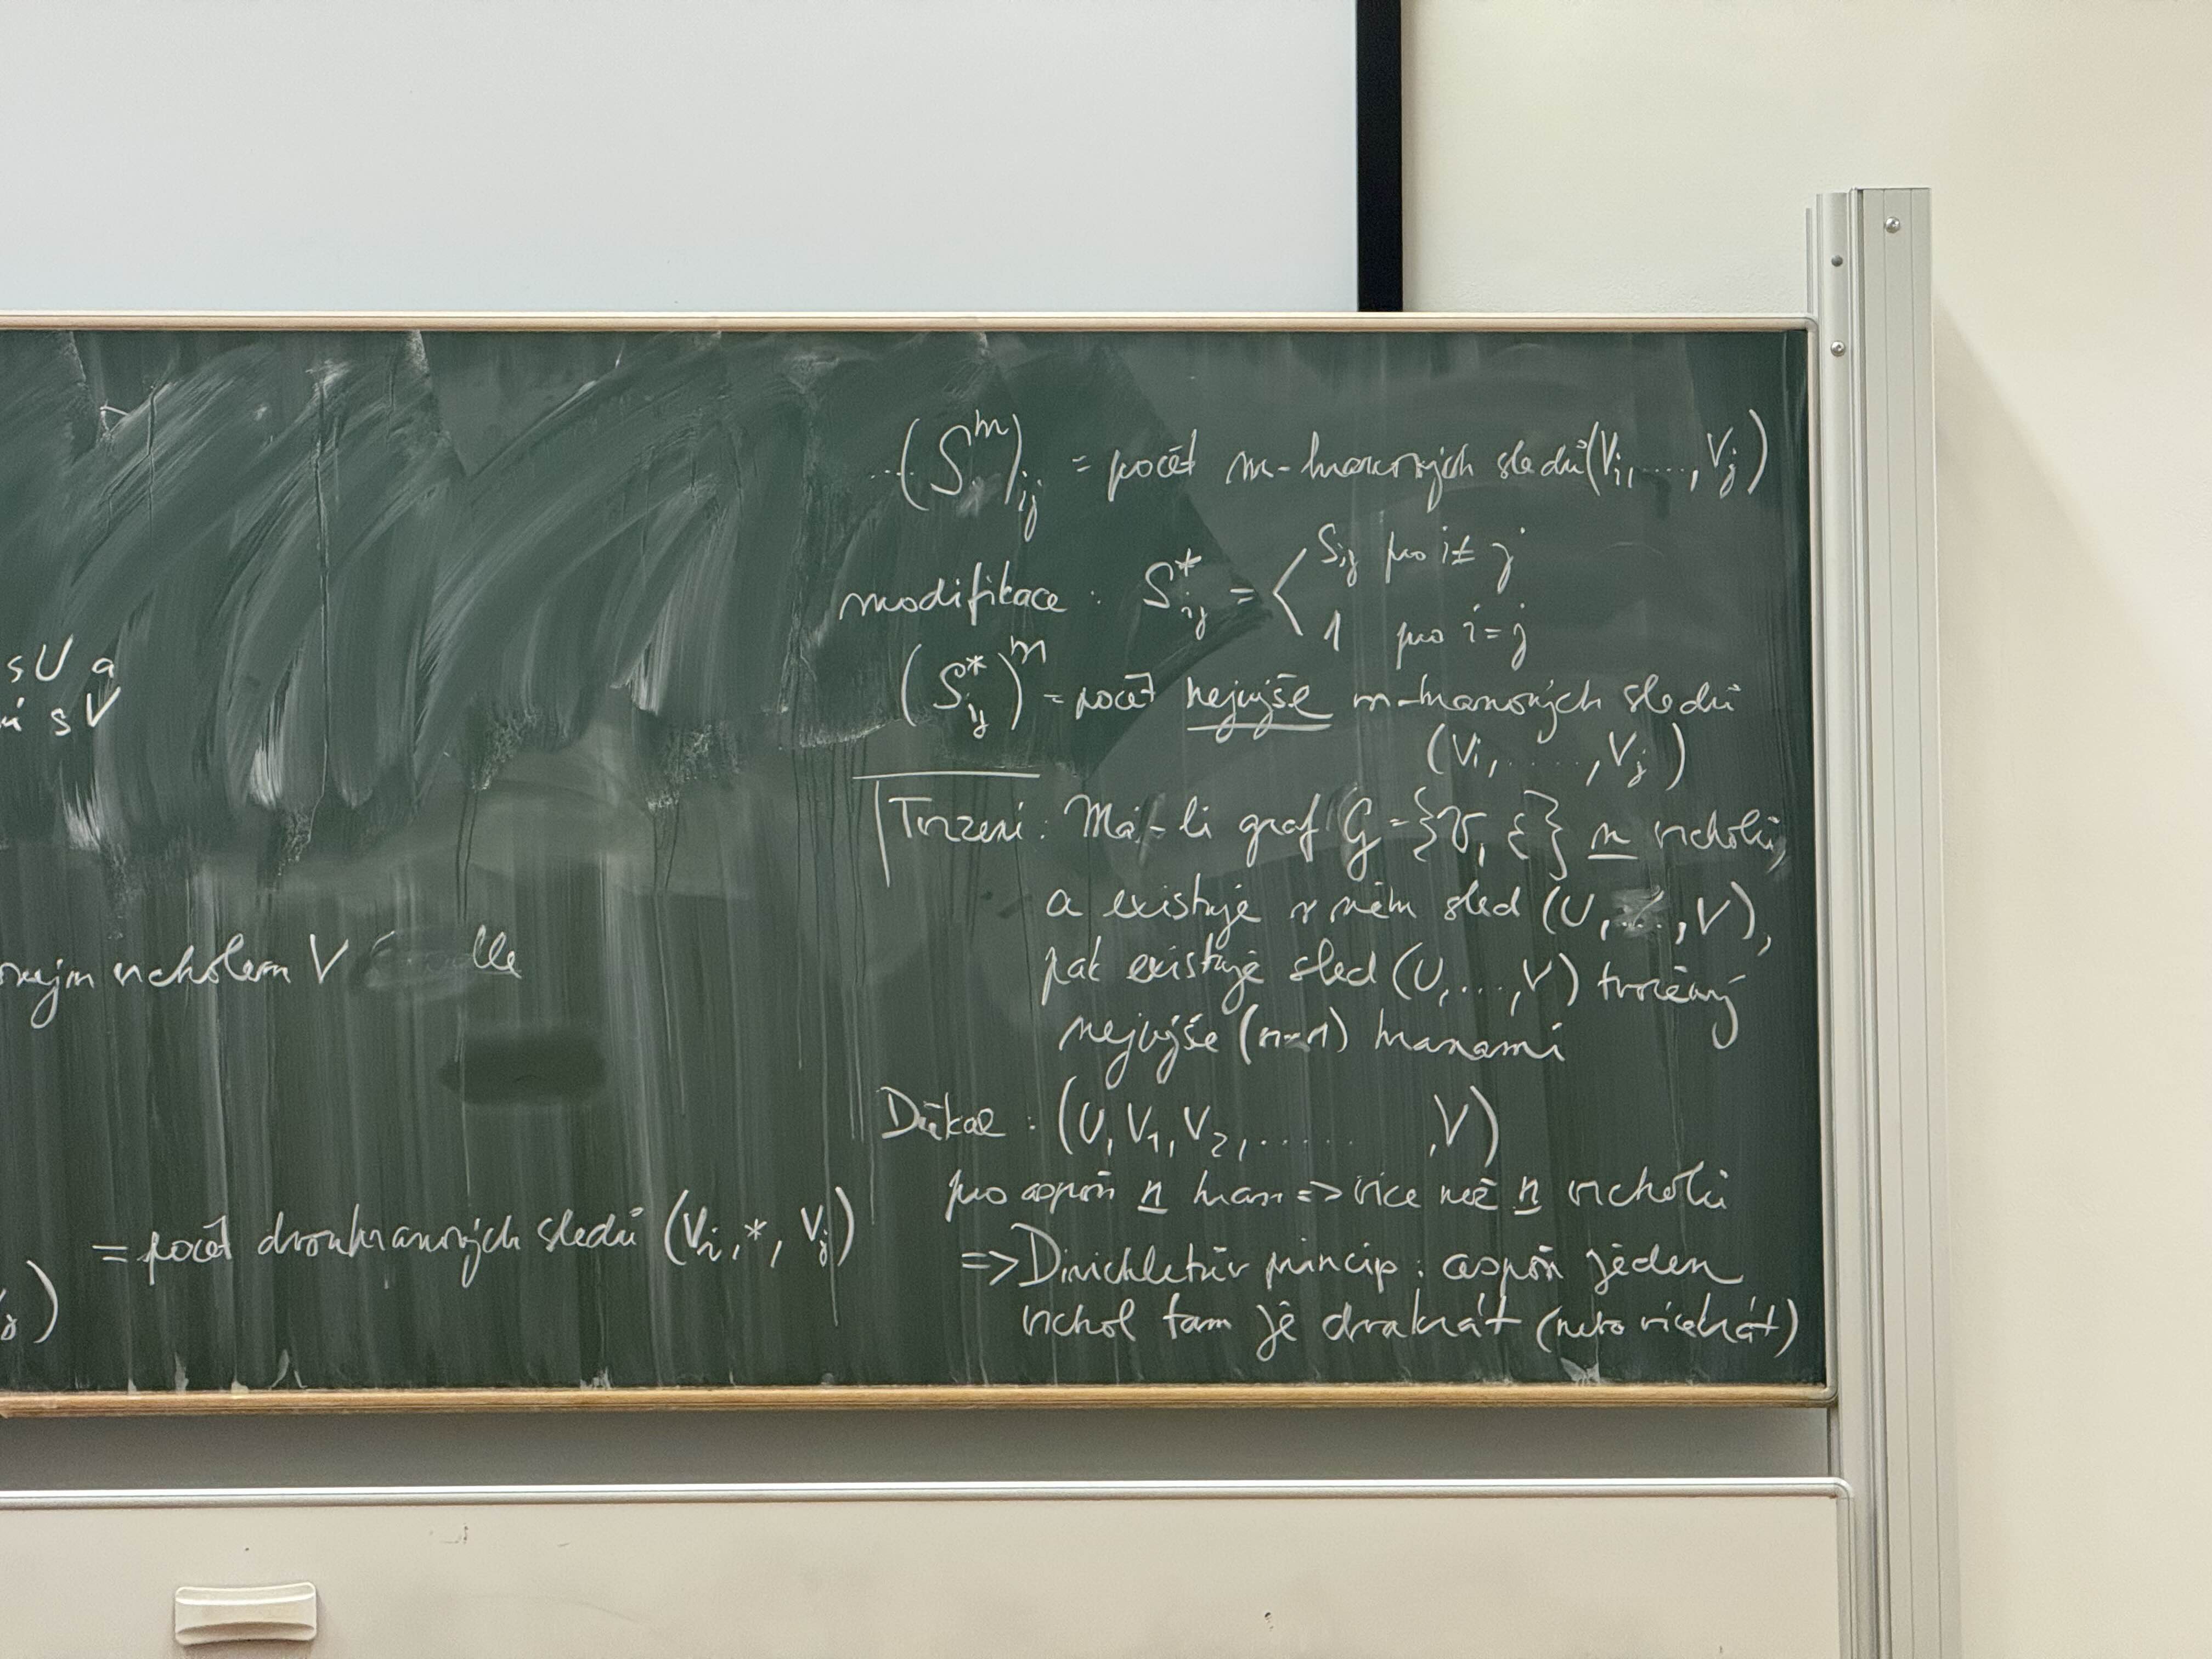 s U a
í s V
ným vrcholem V
= počet dvouhranových sledů (Vi, *, Vj)
j)
(S^m)ij = počet m-hranových sledů (Vi, ..., Vj)
modifikace : S*ij = < Sij pro i ≠ j
1 pro i = j
(S*ij)^m = počet nejvýše m-hranových sledů
(Vi, ...., Vj)
Tvrzení : Má-li graf G = {V, E} n vrcholů,
a existuje v něm sled (U, ..., V),
pak existuje sled (U, ..., V) tvořený
nejvýše (n-1) hranami
Důkaz : (U, V1, V2, ...... , V)
pro aspoň n hran => více než n vrcholů
=> Dirichletův princip : aspoň jeden
vrchol tam je dvakrát (nebo vícekrát)